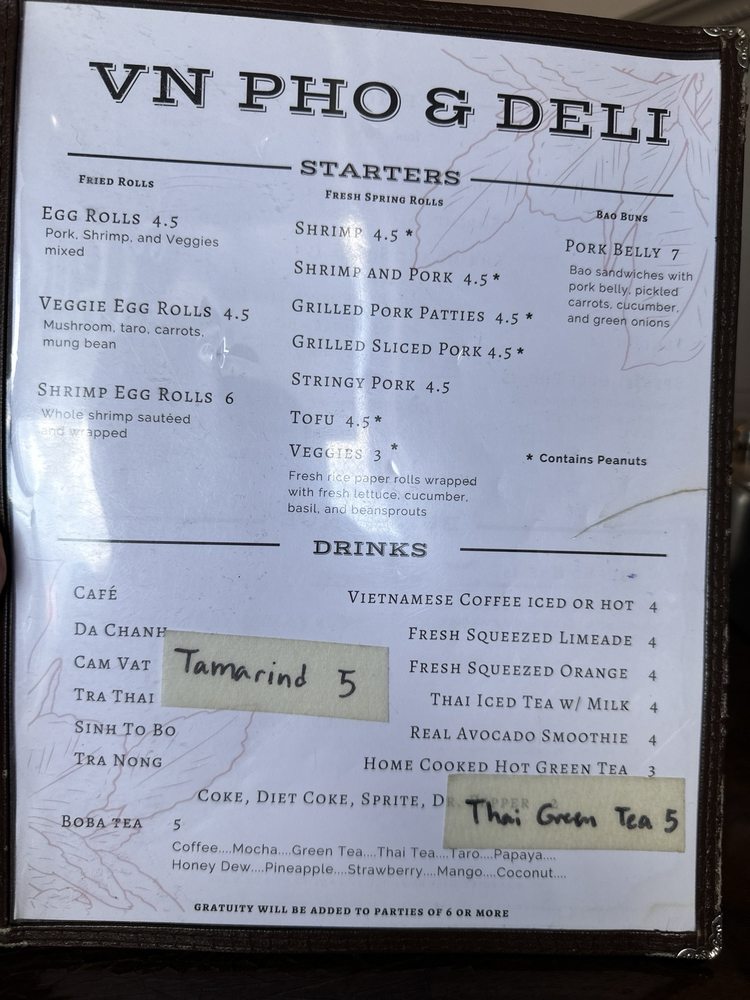 VN PHO & DELI
STARTERS
FRIED ROLLS
EGG ROLLS 4.5
Pork, Shrimp, and Veggies
mixed
VEGGIE EGG ROLLS 4.5
Mushroom, taro, carrots,
mung bean
SHRIMP EGG ROLLS 6
Whole shrimp sautéed
and wrapped
FRESH SPRING ROLLS
SHRIMP 4.5 *
SHRIMP AND PORK 4.5 *
GRILLED PORK PATTIES 4.5 *
GRILLED SLICED PORK 4.5 *
STRINGY PORK 4.5
TOFU 4.5 *
VEGGIES 3 *
Fresh rice paper rolls wrapped
with fresh lettuce, cucumber,
basil, and beansprouts
BAO BUNS
PORK BELLY 7
Bao sandwiches with
pork belly, pickled
carrots, cucumber,
and green onions
* Contains Peanuts
DRINKS
CAFÉ VIETNAMESE COFFEE ICED OR HOT 4
DA CHANH FRESH SQUEEZED LIMEADE 4
CAM VAT FRESH SQUEEZED ORANGE 4
Tamarind 5
TRA THAI THAI ICED TEA W/ MILK 4
SINH TO BO REAL AVOCADO SMOOTHIE 4
TRA NONG HOME COOKED HOT GREEN TEA 3
COKE, DIET COKE, SPRITE, DR. PEPPER 2
Thai Green Tea 5
BOBA TEA 5
Coffee....Mocha....Green Tea....Thai Tea....Taro....Papaya....
Honey Dew....Pineapple....Strawberry....Mango....Coconut....
GRATUITY WILL BE ADDED TO PARTIES OF 6 OR MORE